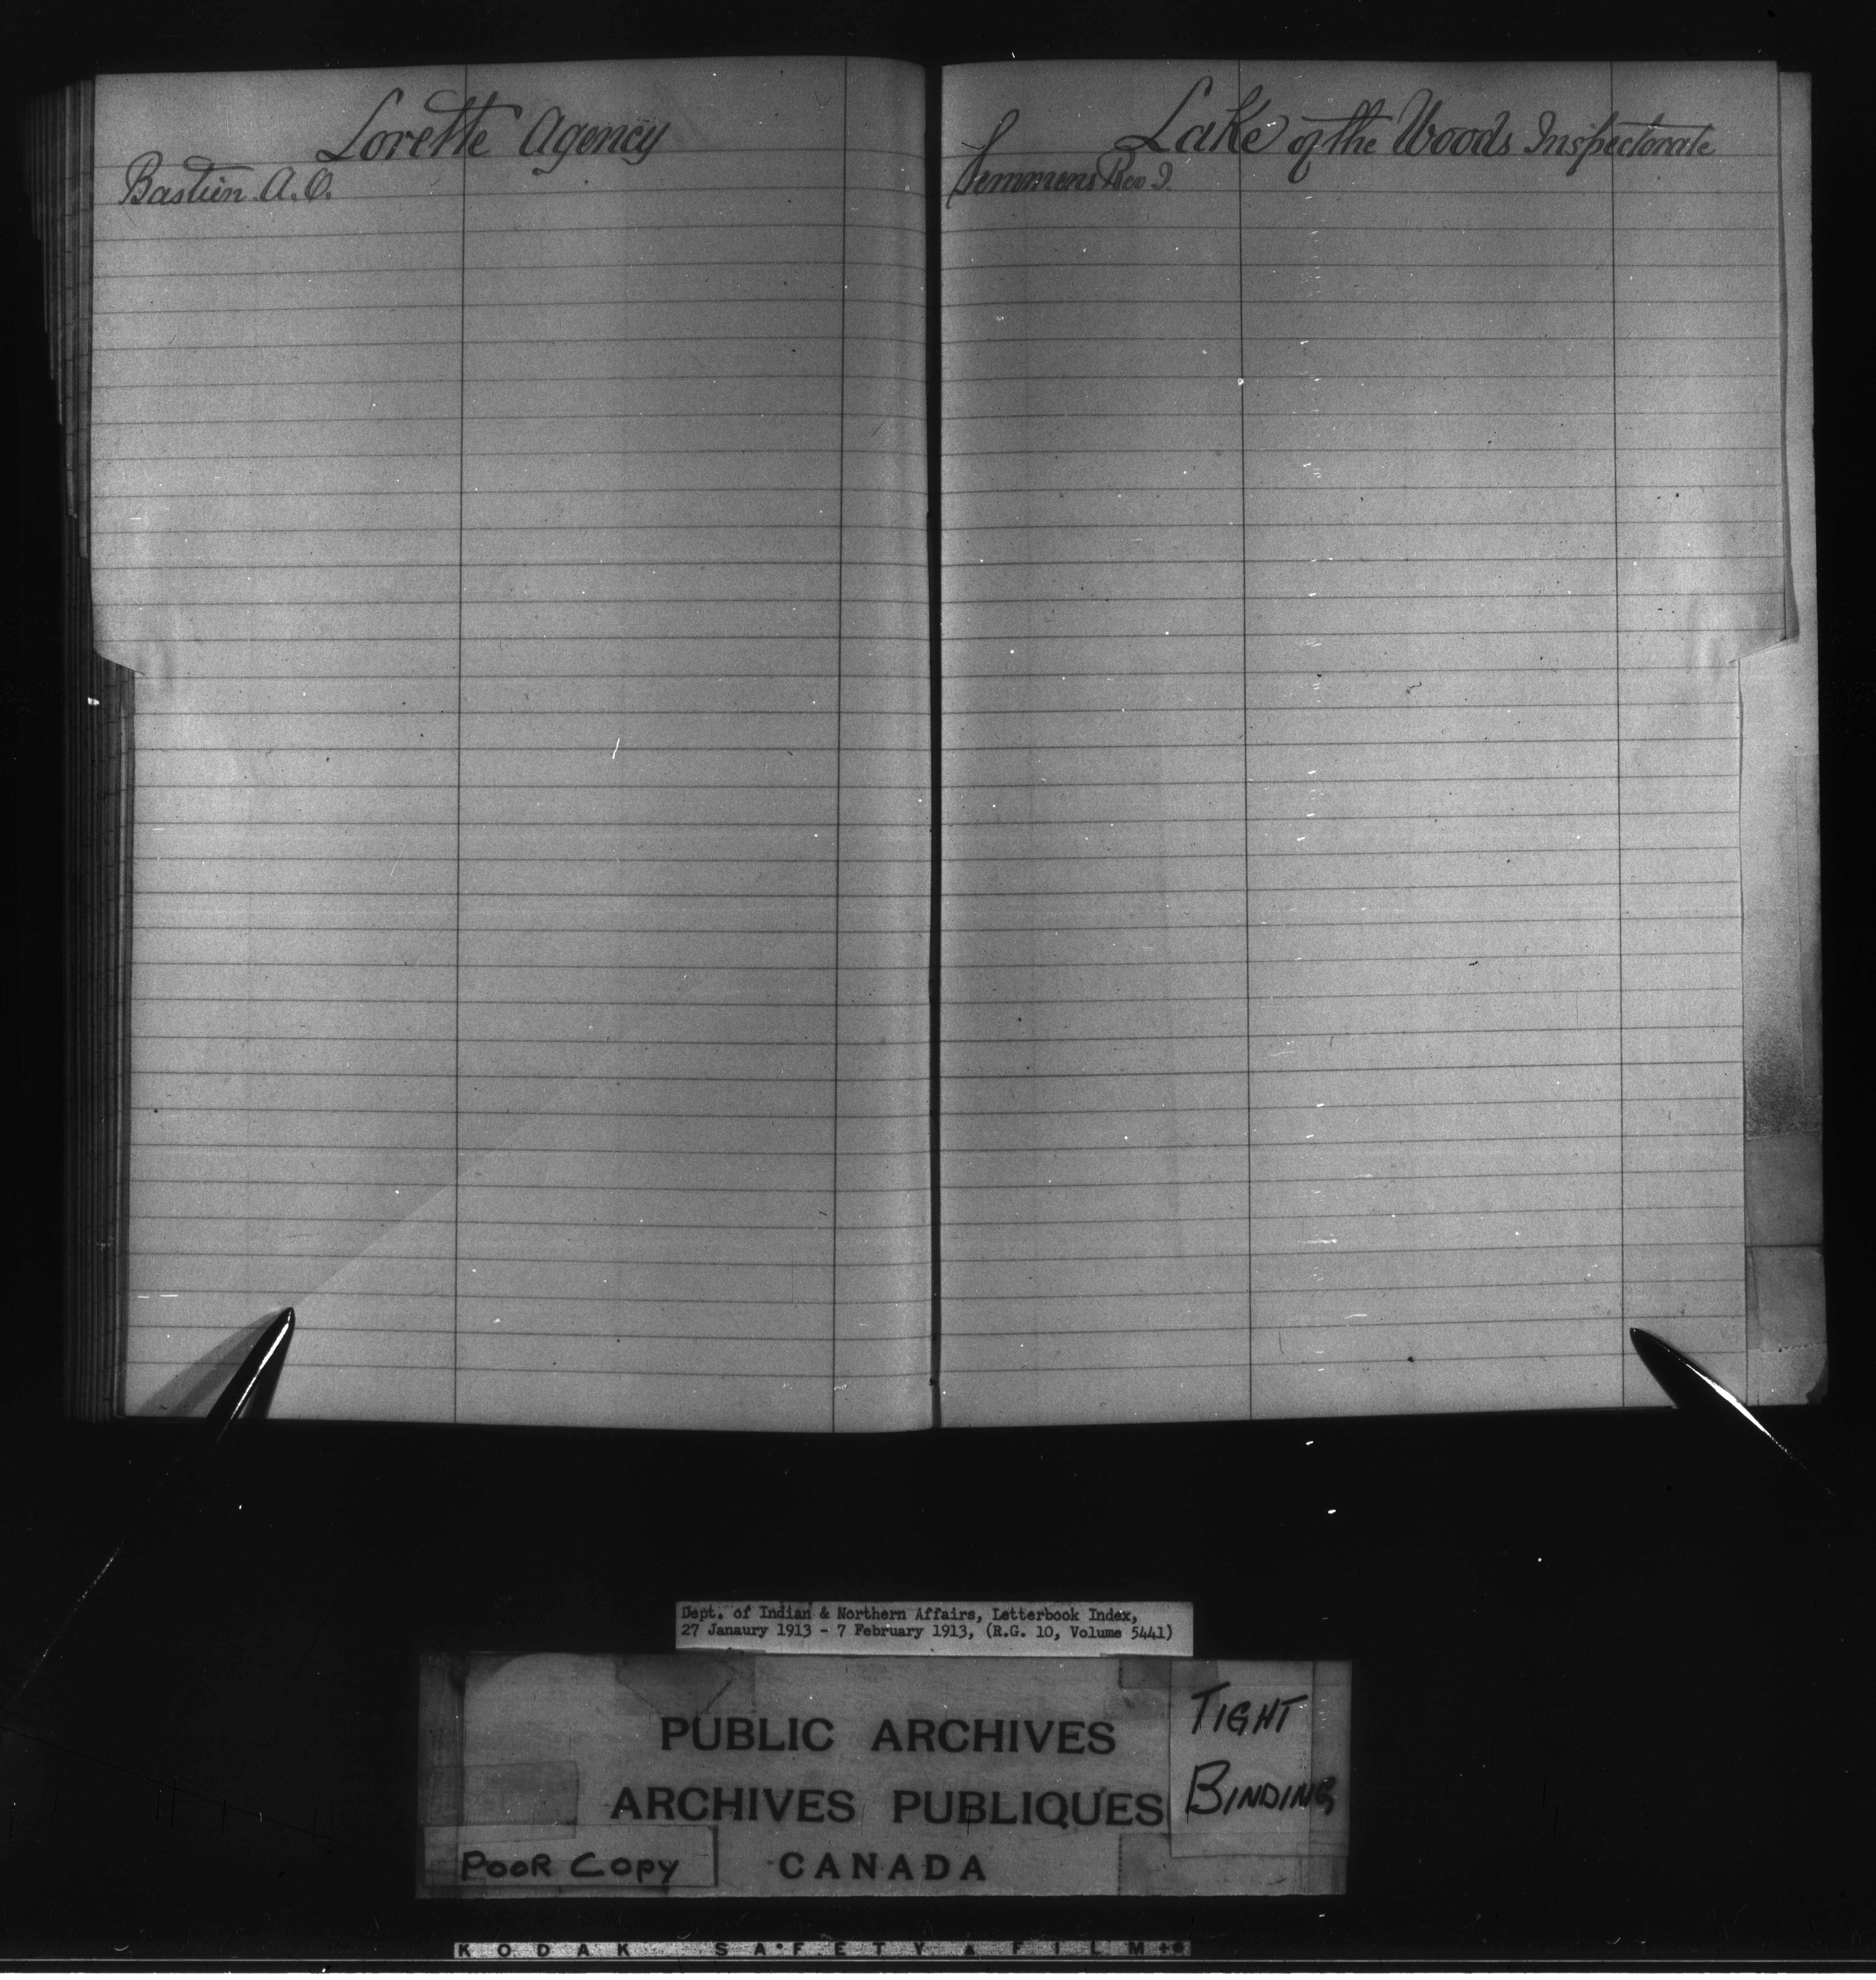 Lorette Agency
Bastien A. O.
Lake of the Woods Inspectorate
Semmens Rev J.
Dept. of Indian & Northern Affairs, Letterbook Index,
27 Janaury 1913 - 7 February 1913, (R.G. 10, Volume 5441)
PUBLIC ARCHIVES
ARCHIVES PUBLIQUES
CANADA
TIGHT
BINDING
POOR COPY
KODAK SAFETY FILM